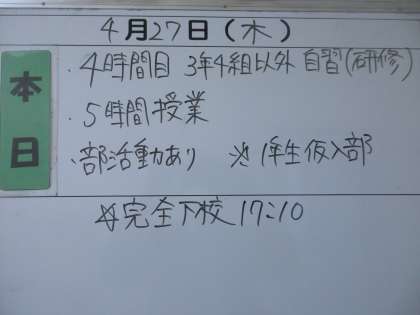 4月27日(木)
本日
・4時間目 3年4組以外 自習(研修)
・5時間授業
・部活動あり ※1年生仮入部
☆完全下校 17:10